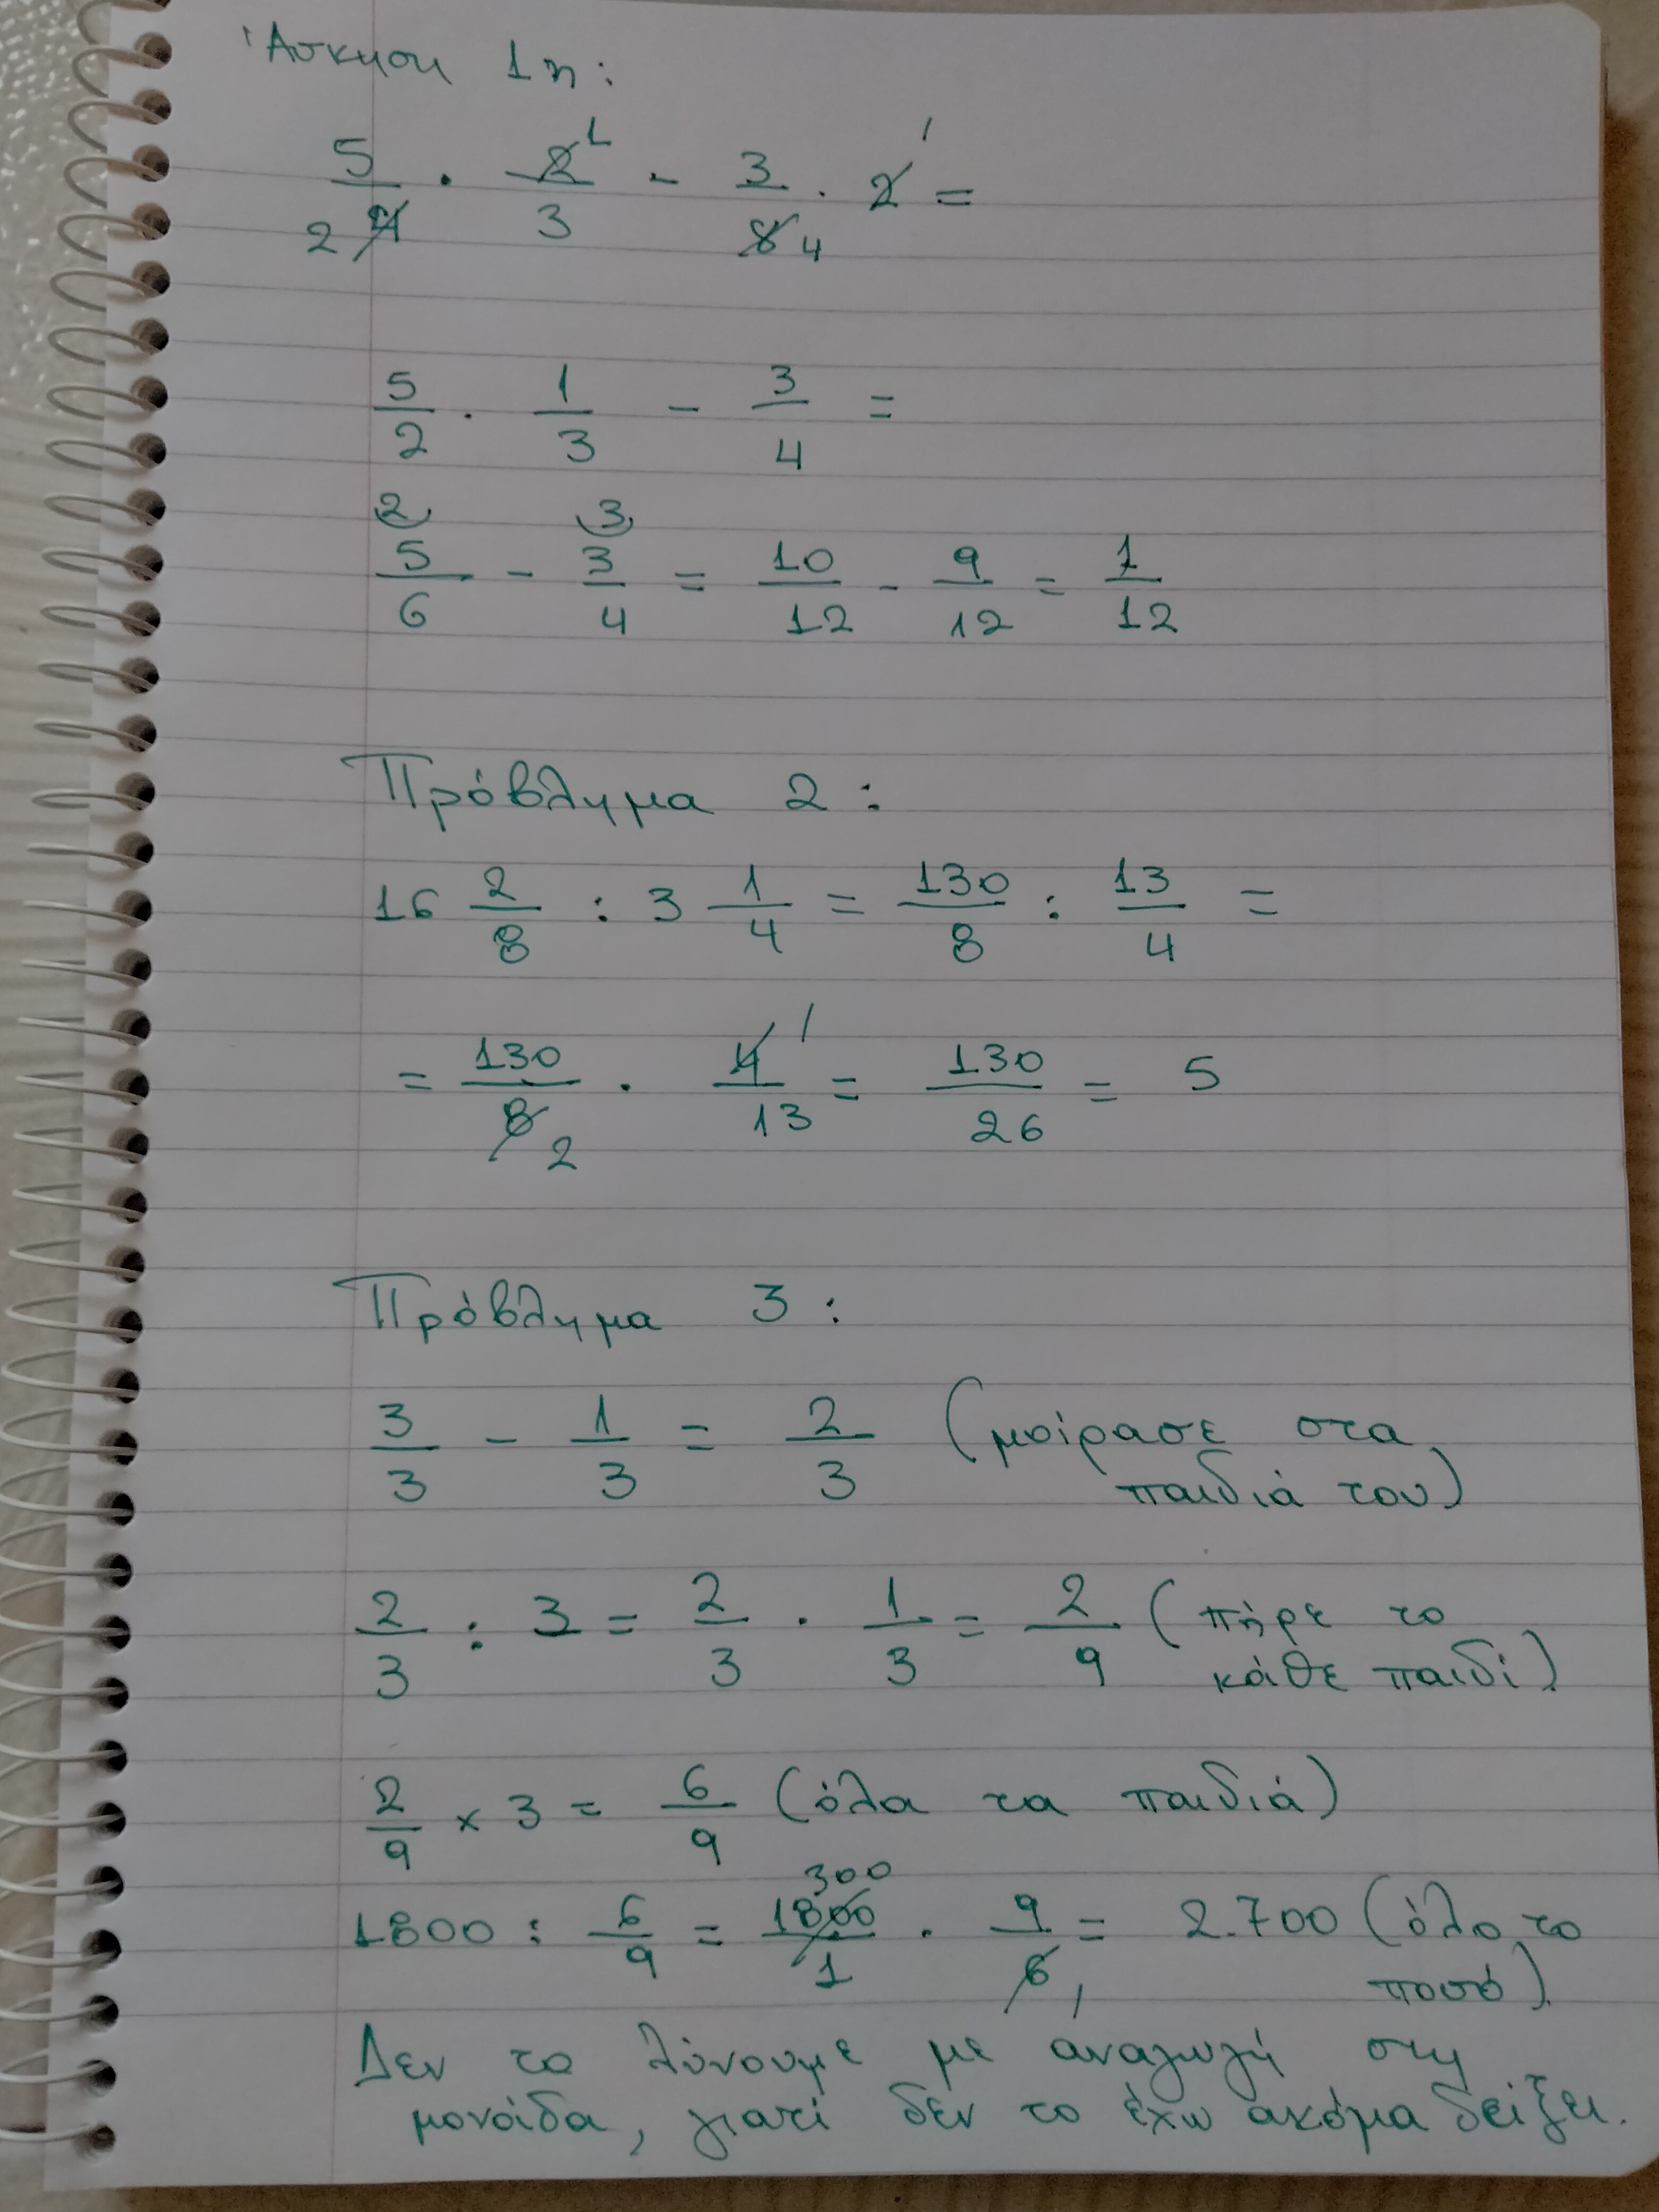 Άσκηση 1η:
5/2̶4̶ · 2̶¹/3 - 3/8̶4 · 2̶¹ =
5/2 · 1/3 - 3/4 =
(2) (3)
5/6 - 3/4 = 10/12 - 9/12 = 1/12
Πρόβλημα 2:
16 2/8 : 3 1/4 = 130/8 : 13/4 =
= 130/8̶2 · 4̶¹/13 = 130/26 = 5
Πρόβλημα 3:
3/3 - 1/3 = 2/3 (μοίρασε στα
παιδιά του)
2/3 : 3 = 2/3 · 1/3 = 2/9 (πήρε το
κάθε παιδί)
2/9 x 3 = 6/9 (όλα τα παιδιά)
300
1800 : 6/9 = 1800/1 · 9/6̶1 = 2.700 (όλο το
ποσό)
Δεν το λύνουμε με αναγωγή στη
μονάδα, γιατί δεν το έχω ακόμα δείξει.